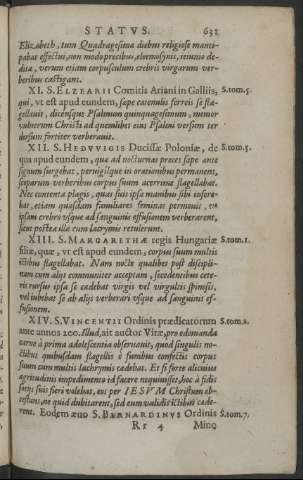 STATVS. 631
Elizabeth, tum Quadragesima diebus religiose manci-
pabat effectus, non modo precibus, eleemosynis, ieiunio de-
dita, verum etiam corpusculum crebris virgarum ver-
beribus castigans.
XI. S. ELZEARII Comitis Ariani in Galliis, S.tom.5.
qui, vt est apud eundem, sæpe catenulis ferreis se fla-
gellauit, dicensque Psalmum quinquagesimum, memor
vulnerum Christi ad quemlibet eius Psalmi versum ter
dorsum fortiter verberauit.
XII. S. HEDVVIGIS Ducissæ Poloniæ, de S.tom.5.
qua apud eundem, quæ ad nocturnas preces sæpe ante
signum surgebat, peruigilque in orationibus permanens,
scoparum verberibus corpus suum acerrime flagellabat.
Nec contenta plagis, quas suis ipsa manibus sibi infere-
bat, etiam quasdam familiares feminas permouit, vt
ipsam crebro vsque ad sanguinis effusionem verberarent,
sicut postea illæ cum lacrymis retulerunt.
XIII. S. MARGARETHÆ regis Hungariæ S.tom.1.
filiæ, quæ, vt est apud eundem, corpus suum multis
ictibus flagellabat. Nam nocte qualibet post discipli-
nam cum alijs communiter acceptam, secedentibus cete-
ris rursus ipsa se cædebat virgis vel virgultis spinosis,
vel iubebat se ab alijs verberari vsque ad sanguinis ef-
fusionem.
XIV. S. VINCENTII Ordinis prædicatorum S.tom.2.
ante annos 200. Illud, ait auctor Vitæ, pro edomanda
carne à prima adolescentia obseruauit, quod singulis no-
ctibus quibusdam flagellis è funibus confectis corpus
suum cum multis lachrymis cædebat. Et si forte alicuius
ægritudinis impedimento id facere nequiuisset, hoc à fidis
socijs suis fieri volebat, eos per IESVM Christum ob-
testans, ne quid dubitarent, sed eum validis ictibus cæde-
rent. Eodem æuo S. BERNARDINVS Ordinis S.tom.7.
Rr 4 Mino